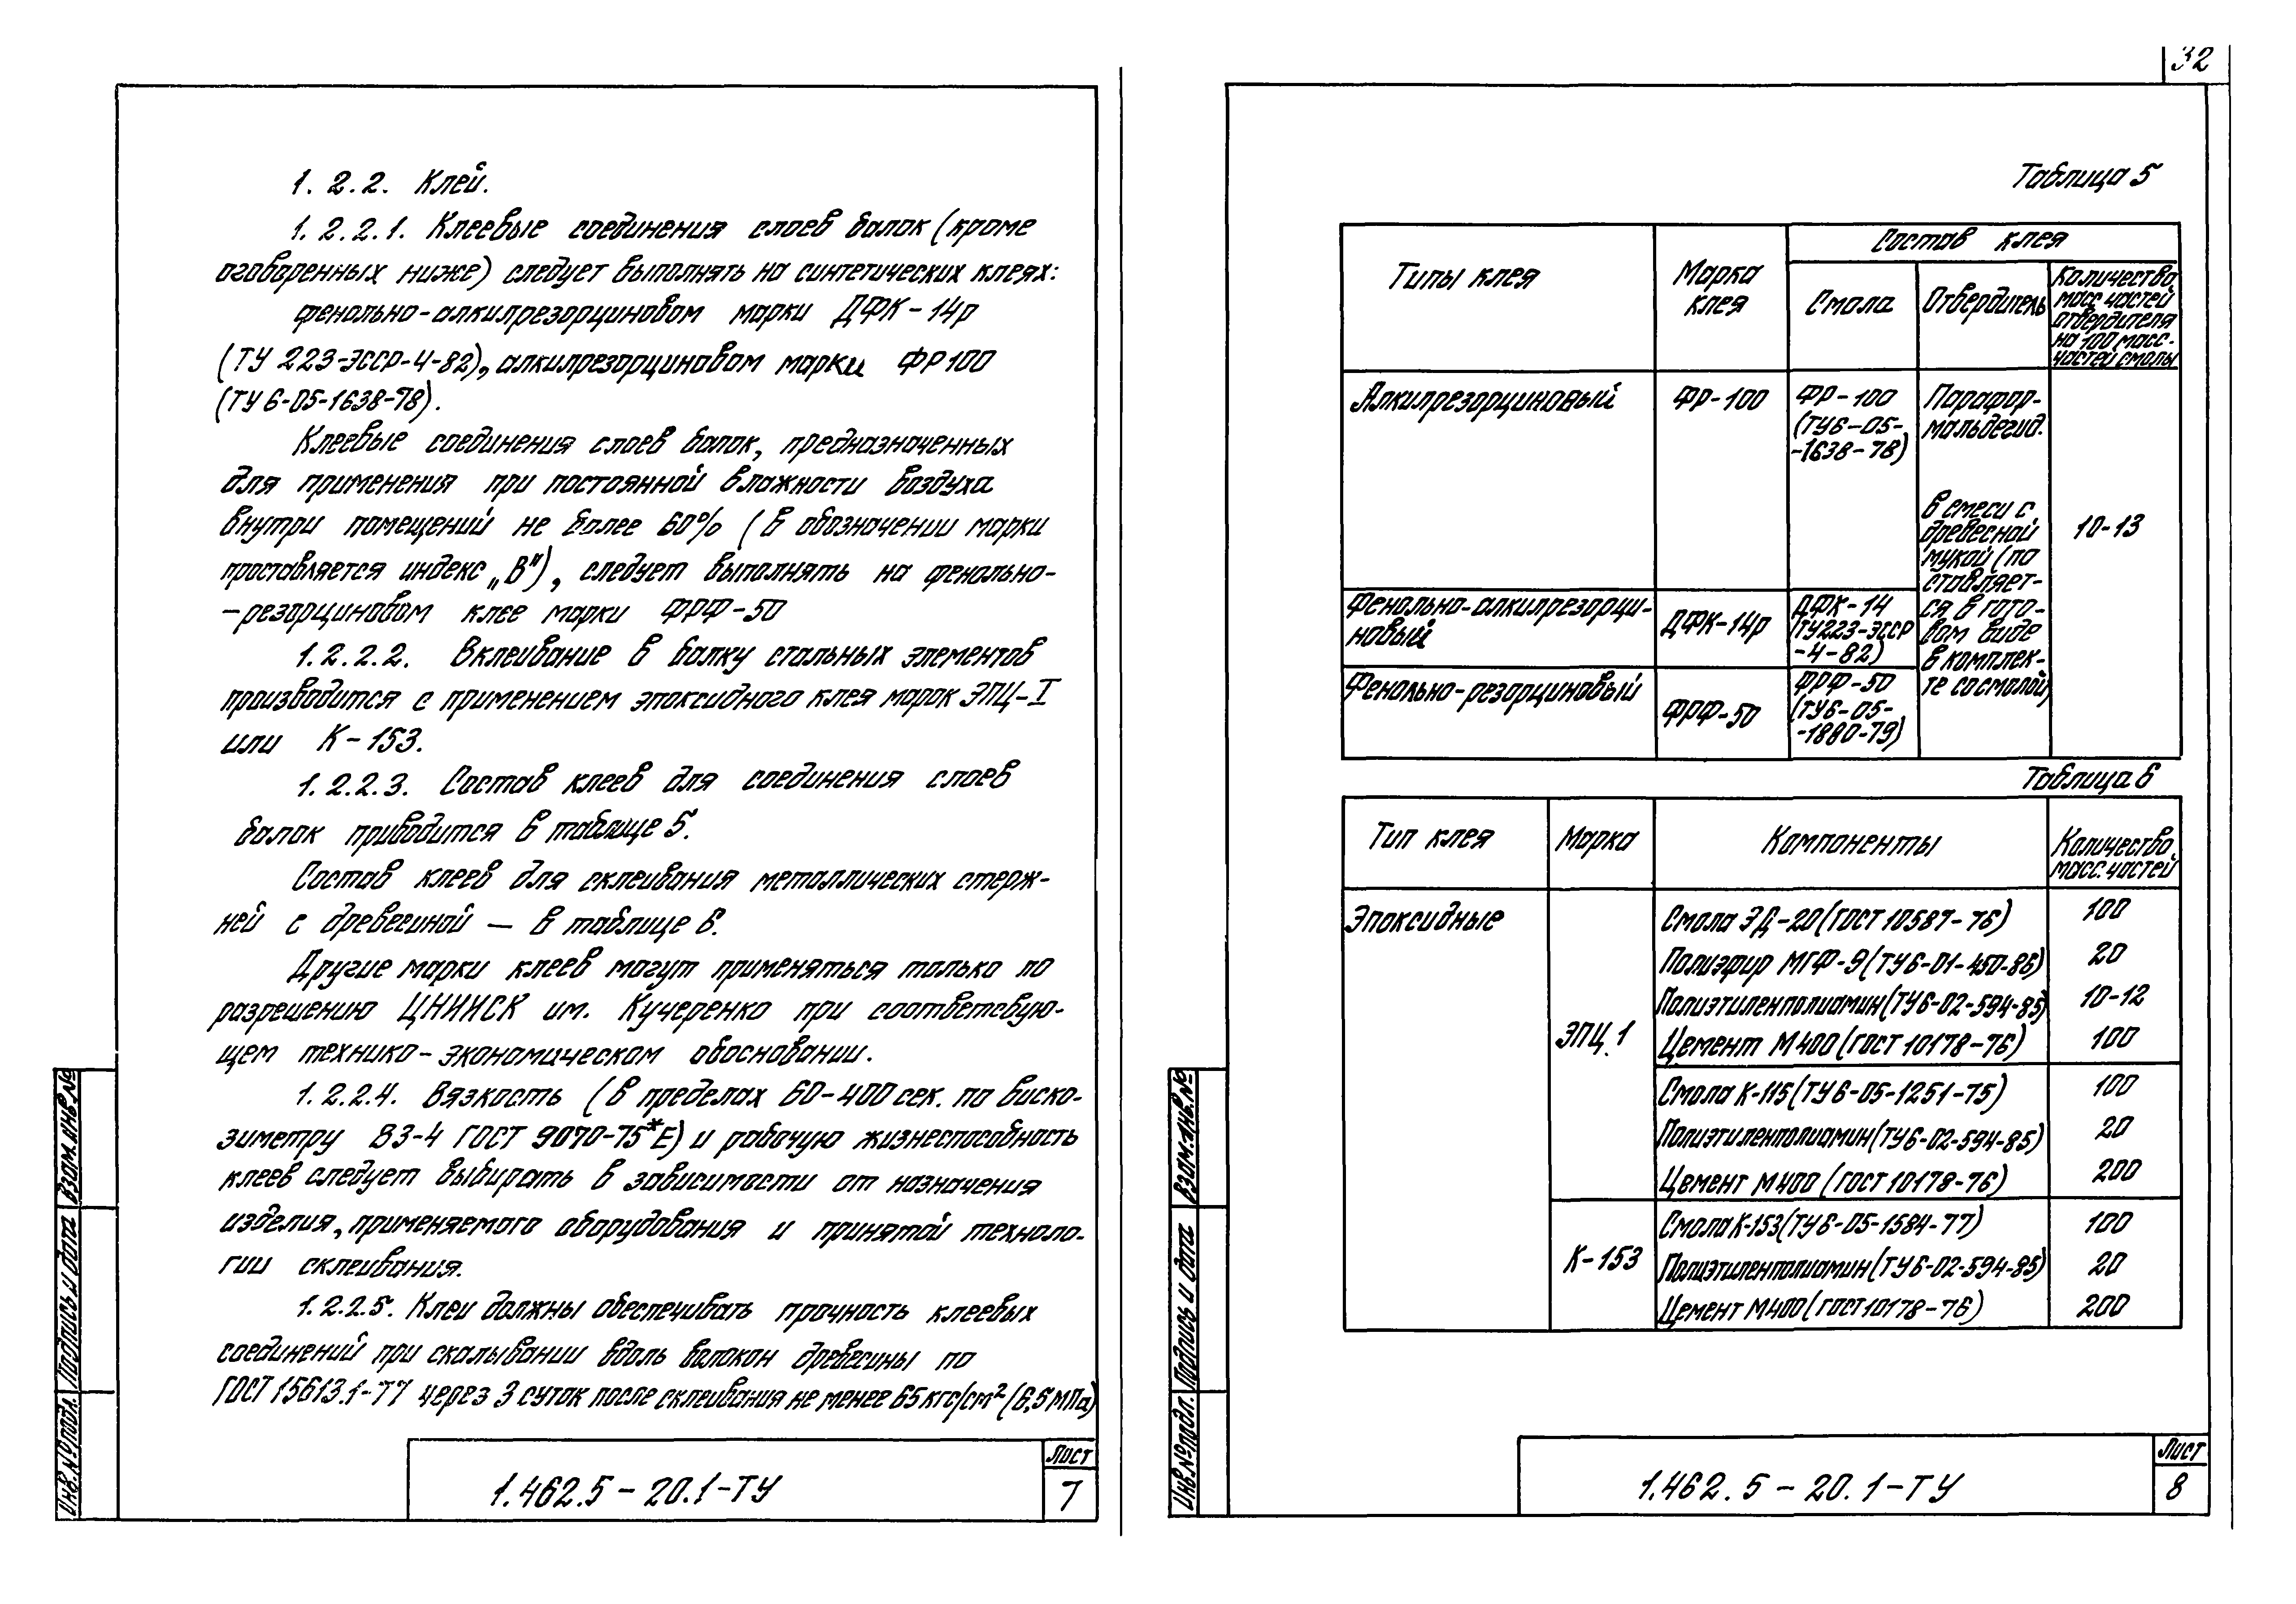 32
1.2.2. Клей.
1.2.2.1. Клеевые соединения слоев балок (кроме
оговоренных ниже) следует выполнять на синтетических клеях:
фенольно-алкилрезорциновом марки ДФК-14р
(ТУ 223-ЭССР-4-82), алкилрезорциновом марки ФР100
(ТУ 6-05-1638-78).
Клеевые соединения слоев балок, предназначенных
для применения при постоянной влажности воздуха
внутри помещений не более 60% (в обозначении марки
проставляется индекс „В"), следует выполнять на фенольно-
-резорциновом клее марки ФРФ-50
1.2.2.2. Вклеивание в балку стальных элементов
производится с применением эпоксидного клея марок ЭПЦ-I
или К-153.
1.2.2.3. Состав клеев для соединения слоев
балок приводится в таблице 5.
Состав клеев для склеивания металлических стерж-
ней с древесиной — в таблице 6.
Другие марки клеев могут применяться только по
разрешению ЦНИИСК им. Кучеренко при соответсвую-
щем технико-экономическом обосновании.
1.2.2.4. Вязкость (в пределах 60-400 сек. по виско-
зиметру ВЗ-4 ГОСТ 9070-75*Е) и рабочую жизнеспособность
клеев следует выбирать в зависимости от назначения
изделия, применяемого оборудования и принятой техноло-
гии склеивания.
1.2.2.5. Клеи должны обеспечивать прочность клеевых
соединений при скалывании вдоль волокон древесины по
ГОСТ 15613.1-77 через 3 суток после склеивания не менее 65 кгс/см² (6,5 МПа)
Инв.№ подл. Подпись и дата Взам.инв.№
1.462.5-20.1-ТУ
Лист
7
Таблица 5
Типы клея
Марка
клея
Состав клея
Смола
Отвердитель
Количество
масс частей
отвердителя
на 100 масс-
частей смолы
Алкилрезорциновый
ФР-100
ФР-100
(ТУ6-05-
-1638-78)
Парафор-
мальдегид.
в смеси с
древесной
мукой (по
ставляет-
ся в гото-
вом виде
в комплек-
те со смолой)
10-13
Фенольно-алкилрезорци-
новый
ДФК-14р
ДФК-14
(ТУ223-ЭССР
-4-82)
Фенольно-резорциновый
ФРФ-50
ФРФ-50
(ТУ6-05-
-1880-79)
Таблица 6
Тип клея
Марка
Компоненты
Количество
масс.частей
Эпоксидные
ЭПЦ.1
Смола ЭД-20 (ГОСТ 10587-76) 100
Полиэфир МГФ-9 (ТУ6-01-450-86) 20
Полиэтиленполиамин (ТУ6-02-594-85) 10-12
Цемент М400 (ГОСТ 10178-76) 100
Смола К-115 (ТУ6-05-1251-75) 100
Полиэтиленполиамин (ТУ6-02-594-85) 20
Цемент М400 (ГОСТ 10178-76) 200
К-153
Смола К-153 (ТУ6-05-1584-77) 100
Полиэтиленполиамин (ТУ6-02-594-85) 20
Цемент М400 (ГОСТ 10178-76) 200
Инв.№ подл. Подпись и дата Взам.инв.№
1.462.5-20.1-ТУ
Лист
8